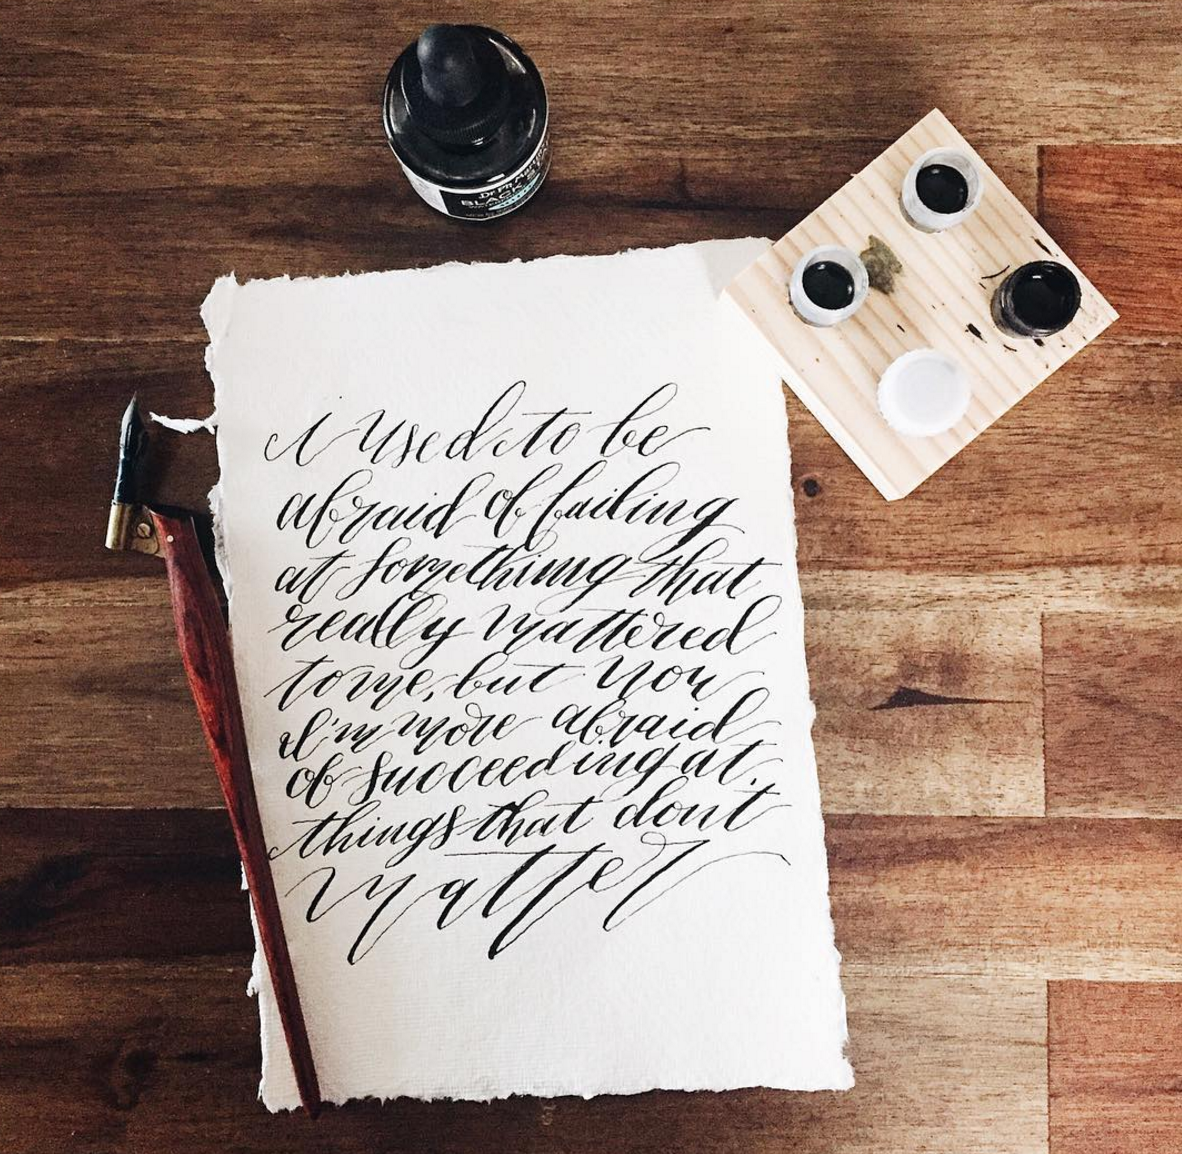 Dr. Ph. Martin's
BLACK
I used to be
afraid of failing
at something that
really mattered
to me, but now
I'm more afraid
of succeeding at
things that don't
matter